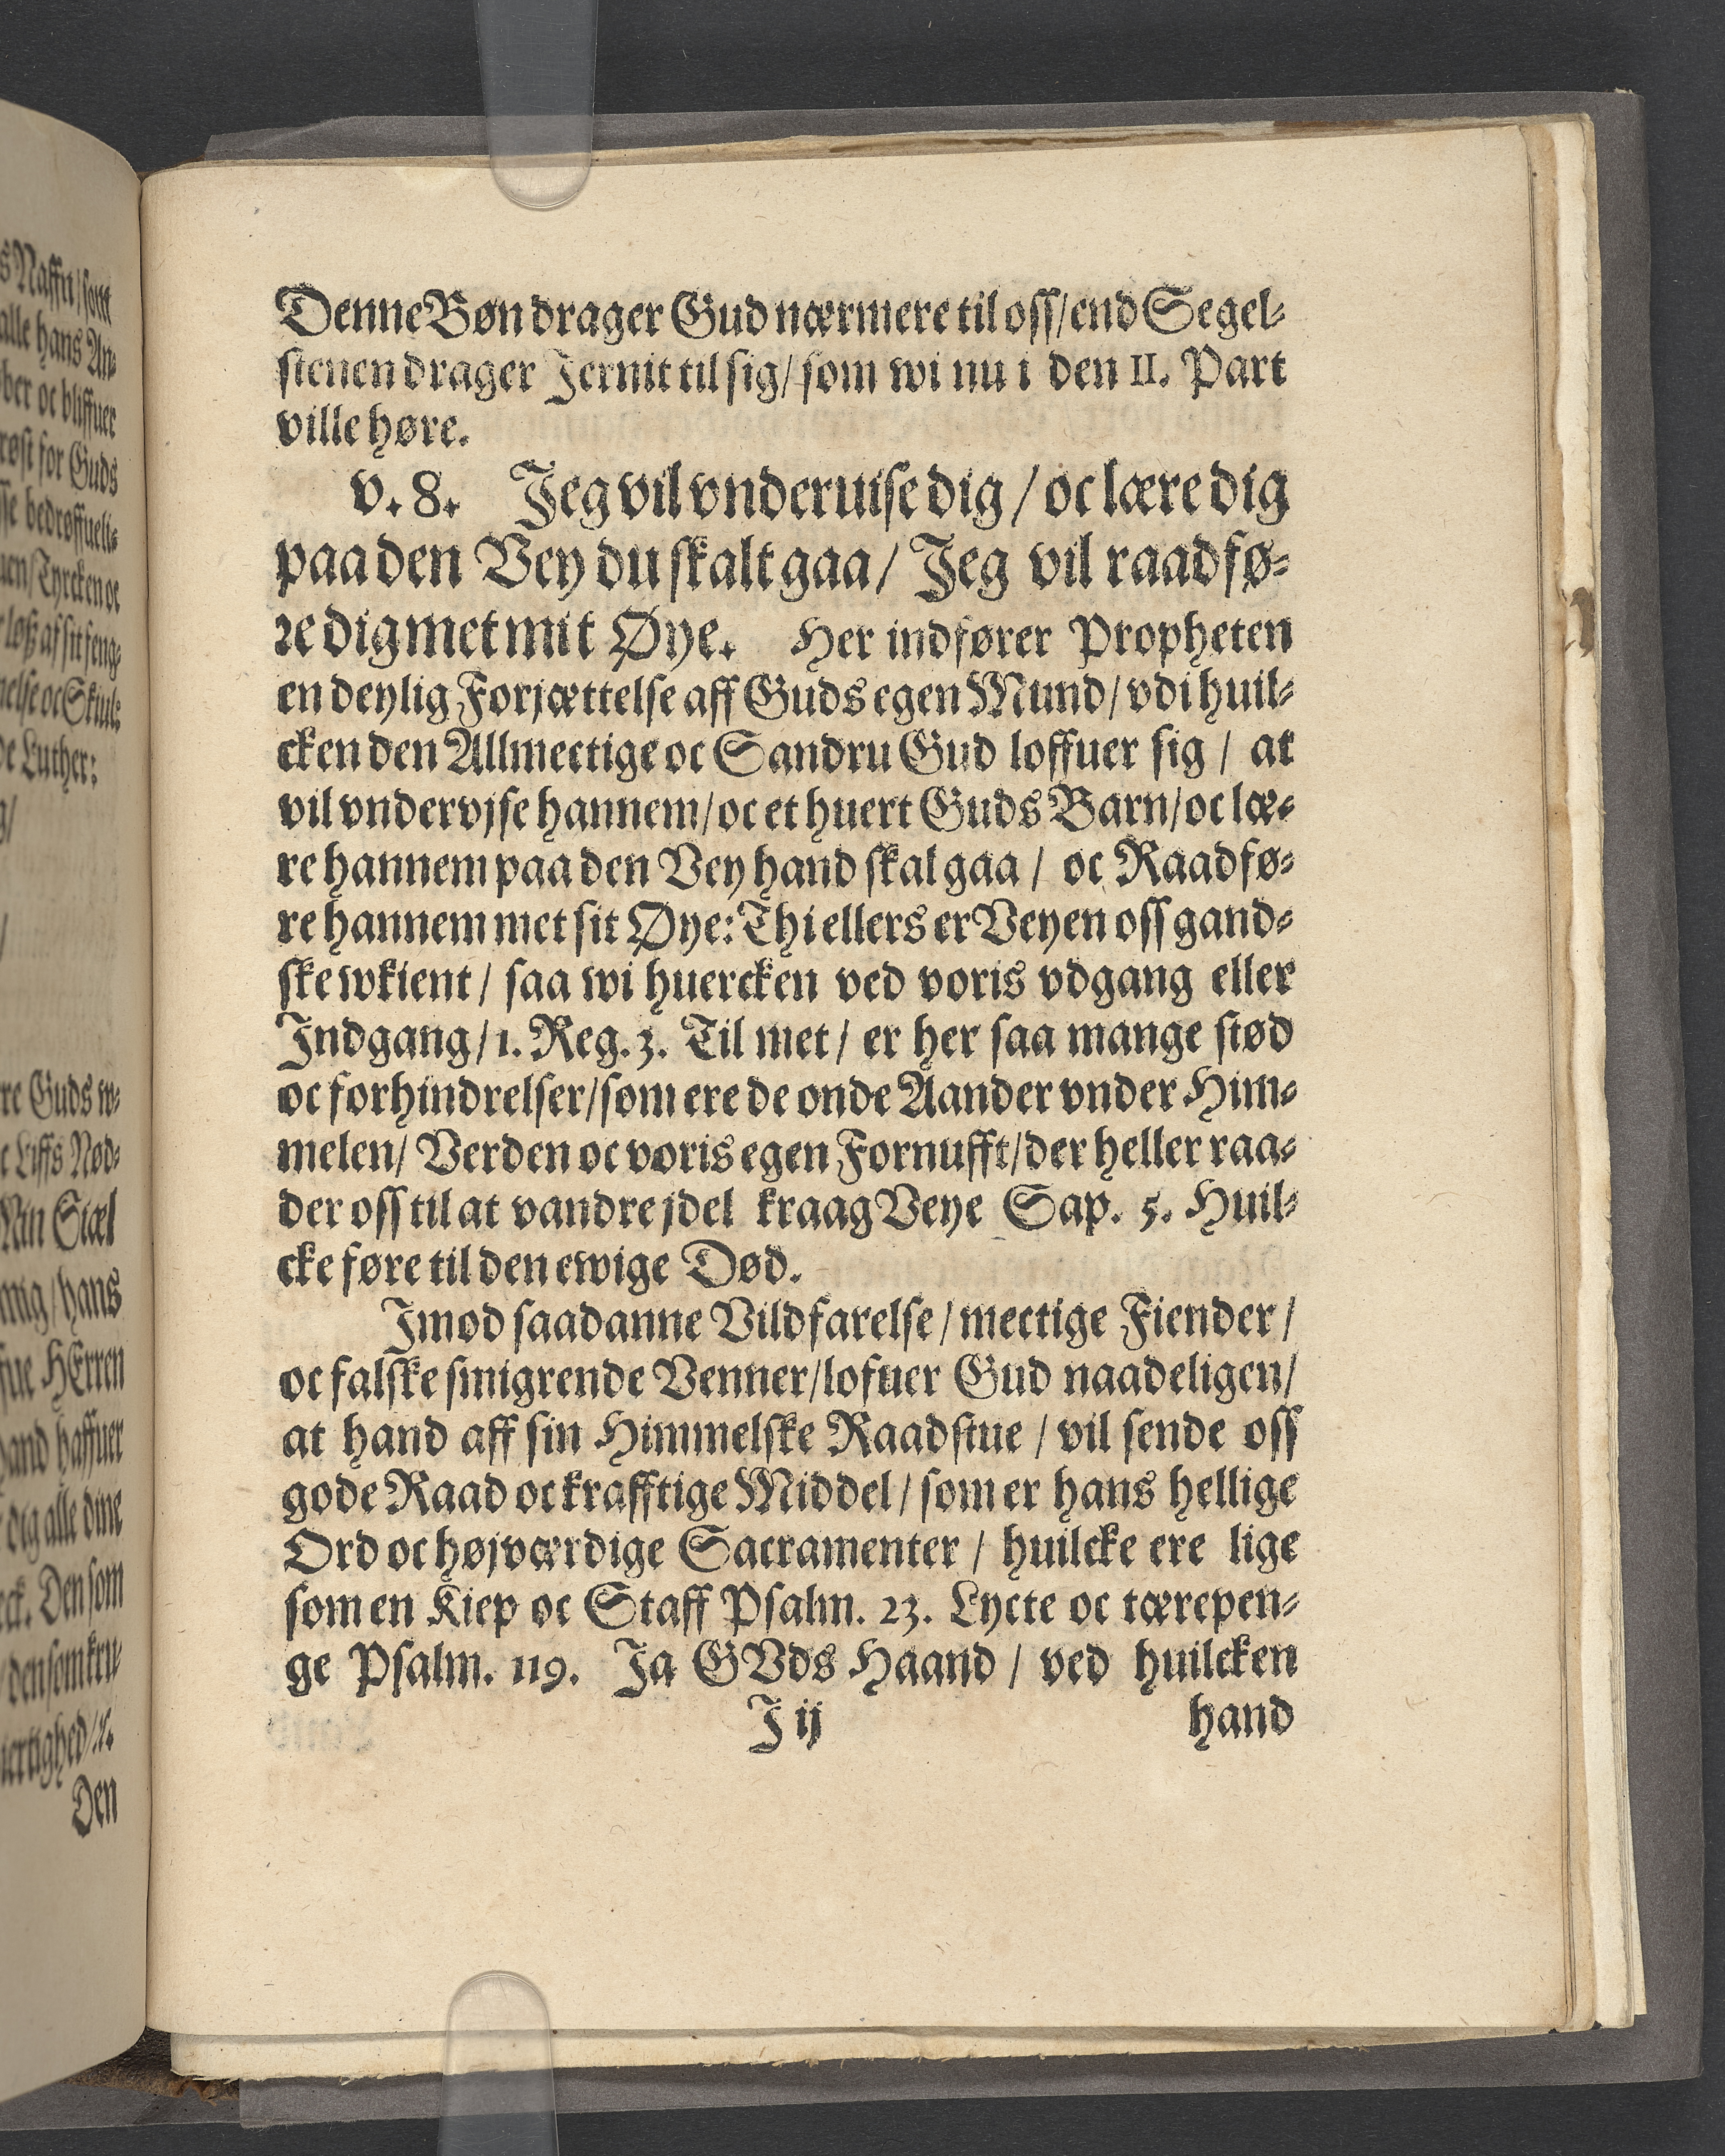 Denne Bøn drager Gud nærmere til oss/ end Segel-
stenen drager Jernit til sig/ som wi nu i den II. Part
ville høre.
v. 8. Jeg vil vnderuise dig / oc lære dig
paa den Vey du skalt gaa/ Jeg vil raadfø-
re dig met mit Øye. Her indfører Propheten
en deylig Forjættelse aff Guds egen Mund/ vdi huil-
cken den Allmectige oc Sandru Gud loffuer sig / at
vil vndervjse hannem/ oc et huert Guds Barn/ oc læ-
re hannem paa den Vey hand skal gaa / oc Raadfø-
re hannem met sit Øye: Thi ellers er Veyen oss gand-
ske wkient / saa wi huercken ved voris vdgang eller
Indgang/ 1. Reg. 3. Til met / er her saa mange stød
oc forhindrelser/ som ere de onde Aander vnder Him-
melen/ Verden oc voris egen Fornufft/ der heller raa-
der oss til at vandre jdel kraag Veye Sap. 5. Huil-
cke føre til den ewige Død.
Imod saadanne Vildfarelse / mectige Fiender /
oc falske smigrende Venner/ lofuer Gud naadeligen/
at hand aff sin Himmelske Raadstue / vil sende oss
gode Raad oc krafftige Middel / som er hans hellige
Ord oc højværdige Sacramenter / huilcke ere lige
som en Kiep oc Staff Psalm. 23. Lycte oc tærepen-
ge Psalm. 119. Ja GVds Haand / ved huilcken
J ij hand